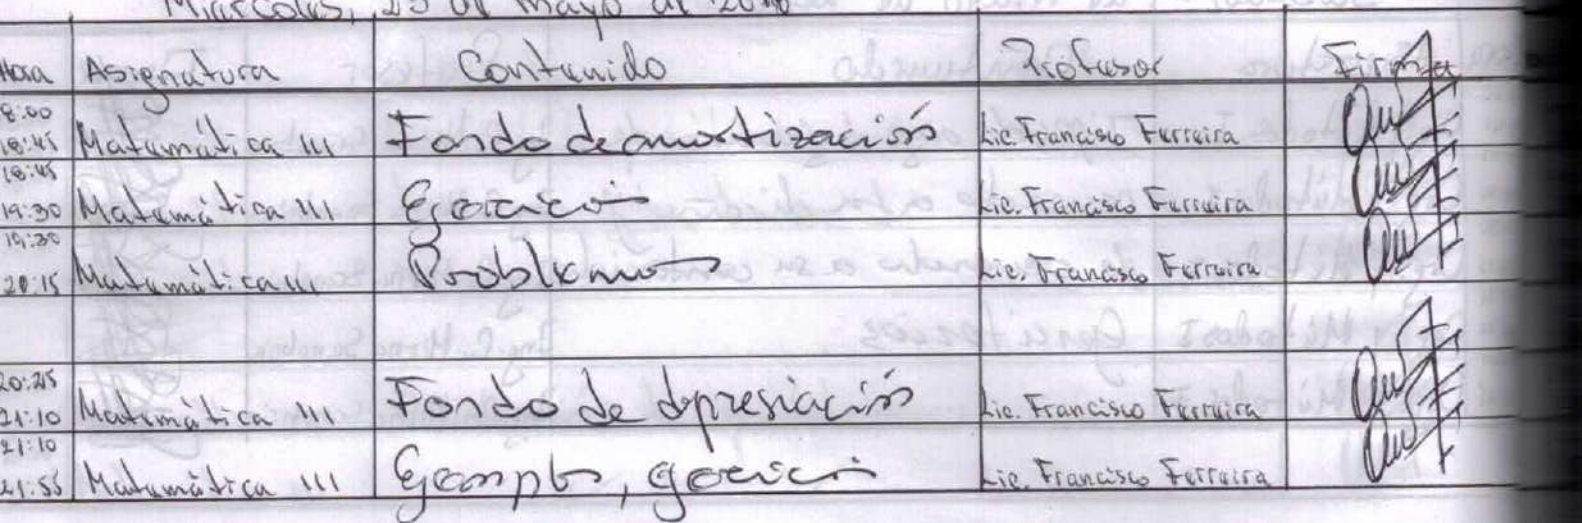 Miércoles, 23 de Mayo de 2018
Hora Asignatura Contenido Profesor Firma
8:00
18:45 Matemática III Fondo de amortización Lic. Francisco Ferreira
18:45
19:30 Matemática III Ejercicios Lic. Francisco Ferreira
19:30
20:15 Matemática III Problemas Lic. Francisco Ferreira
20:25
21:10 Matemática III Fondo de depresiación Lic. Francisco Ferreira
21:10
21:55 Matemática III Ejemplos, ejercicios Lic. Francisco Ferreira